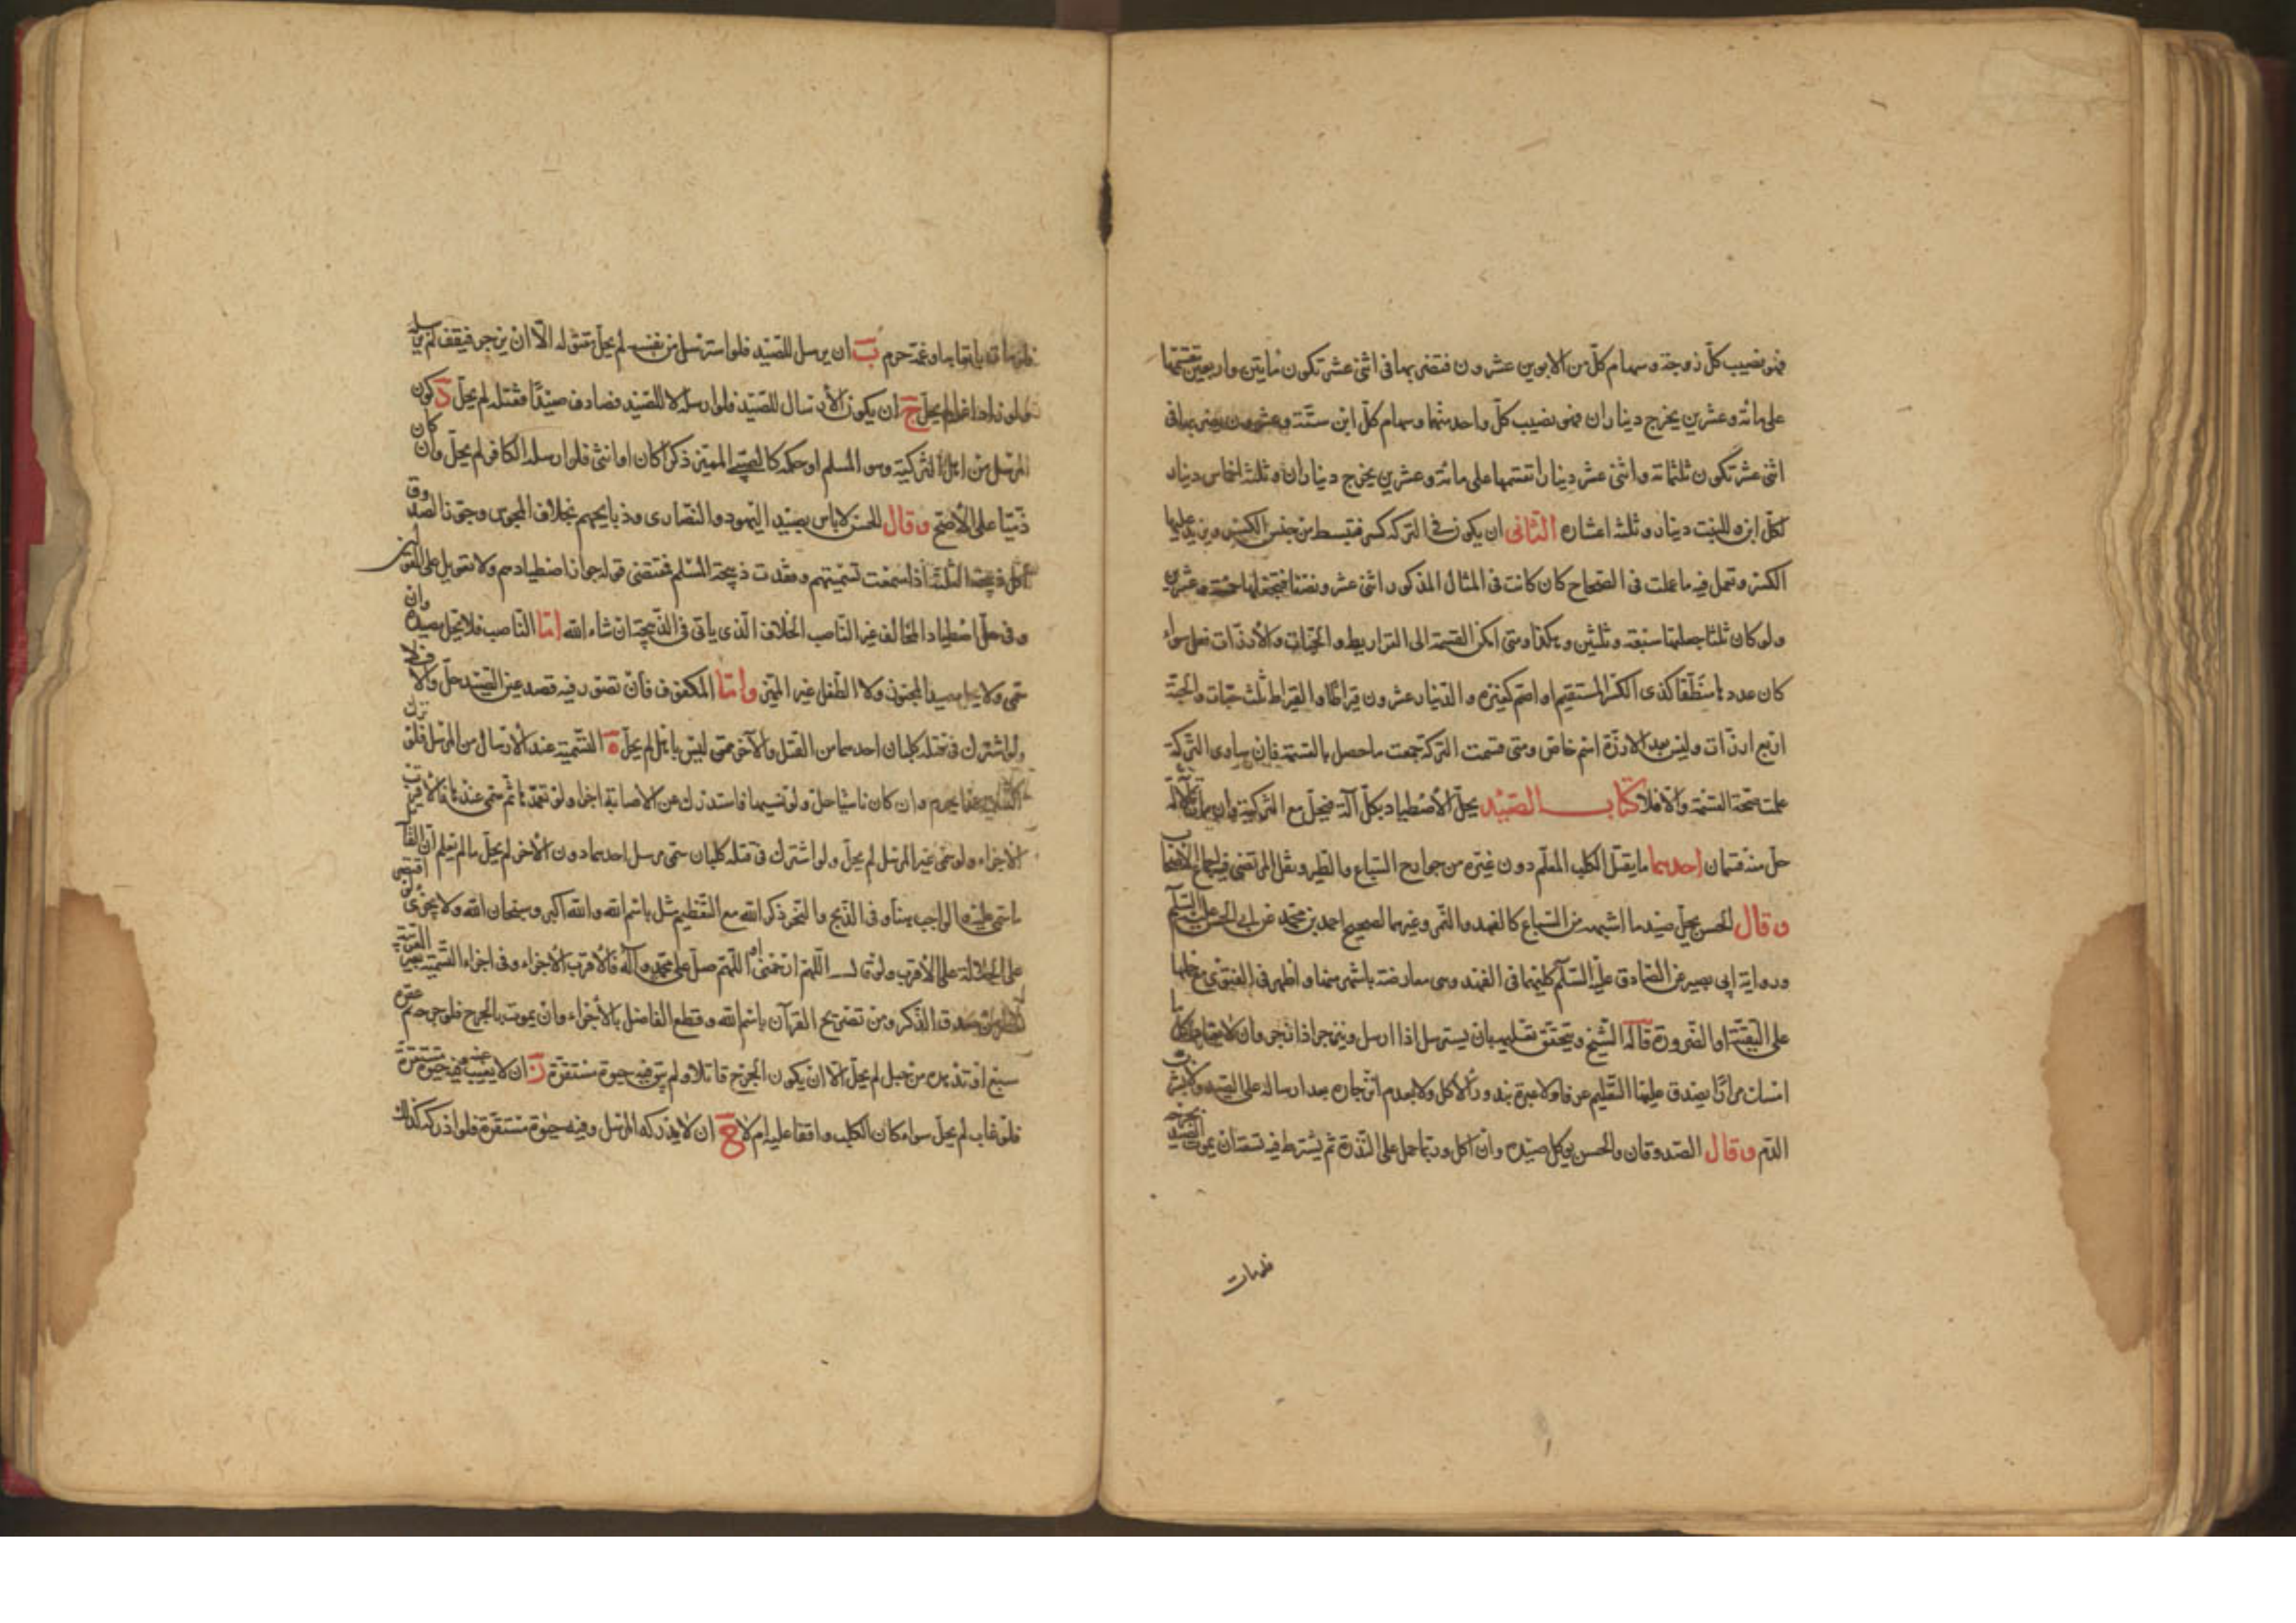 فهو نصيب كلّ زوجة وسهام كلّ من الابوين عشرون فتضربها في اثنى عشر تكون مايتين واربعين تقسّمها
على مائة وعشرين يخرج ديناران فهو نصيب كلّ واحد منهما وسهام كلّ ابن ستّة وعشرون تضربها في
اثنى عشر تكون ثلثمائة واثنى عشر دينارا تقسّمها على مائة وعشرين يخرج ديناران وثلثة اخماس دينار
لكلّ ابن وللبنت دينار وثلثة اعشاره الثانى ان يكون في التركة كسر فتبسط من جنس الكسر ويزيد عليها
الكسر وتعمل فيه ما عملت في الصّحاح كان كانت في المثال المذكور اثنى عشر ونصفا فتجعلها خمسة وعشرين
ولو كان ثلثا جعلتها سبعة وثلثين وهكذا ومتى امكن القسمة الى القراريط والحبّات والأرزّات فعل سواء
كان عددها منطقا كذى الكسر المستقيم او اصم كغيره والدّينار عشرون قيراطا والقيراط ثلث حبّات والحبّة
اربع ارزّات وليس بعد الارزّة اسم خاصّ ومتى قسمت التركة جمعت ما حصل بالقسمة فان ساوى التركة
علمت صحّة القسمة والّا فلا كتاب الصّيد يحلّ الأصطياد بكلّ آلة فيحلّ مع التركية وان
حلّ منه قسمان احدهما ما يقتل الكلب المعلّم دون غيره من جوارح السّباع والطّير ونقل المرتضى فيه اجماع الاصحاب
وقال الحسن يحلّ صيد ما اشبهه من السّباع كالفهد والنّمر وغيرهما لصحيح احمد بن محمّد عن ابى الحسن عليه السّلم
ورواية ابى بصير عن الصّادق عليه السّلم كليهما في الفهد وهى معارضة باشهر منها واظهر في الفتوى مع حملها
على التّقيّة او الضّرورة قاله الشّيخ ويتحقّق تعليمه بان يسترسل اذا ارسل وينزجر اذا زجر وان لا يعتاد اكل ما
امسك مرارا يصدق عليها التّعليم عرفا ولا عبرة بندور الأكل ولا بعدم انزجاره بعد ارساله على الصّيد ولا بشرب
الدّم وقال الصّدوقان والحسن يوكل صيده وان اكل وربّما حمل على النّدرة ثم يشترط فيه تسعة ان يموت الصّيد بجرحه
فلو مات باتعابه او غمّه حرم ب ان يرسل للصّيد فلو استرسل من نفسه لم يحلّ مقتوله الّا ان يزجره فيقف ثم يرسله
ولو زاده اغراء لم يحلّ ج ان يكون الأرسال للصّيد فلو ارسله لا للصّيد فصادف صيدا فقتله لم يحلّ د كون
المرسل من اهل التركية وهو المسلم او حكمه كالصّبى المميّز ذكرا كان او انثى فلو ارسله الكافر لم يحلّ وان كان
ذمّيّا على الأصحّ وقال الحسن لا باس بصيد اليهود والنّصارى وذبايحهم بخلاف المجوس وجوّز الصّدوق
اكل ذبيحة الثّلثة اذا سمعت تسميتهم وفقدت ذبيحة المسلم فمقتضى قوله جواز اصطيادهم ولا تعويل على القولين
وفى حلّ اصطياد المخالف غير النّاصب الخلاف الّذى ياتى في الذّبيحة ان شاء الله امّا النّاصب فلا يحلّ صيده وان
سمّى ولا يحلّ صيد المجنون ولا الطّفل غير المميّز وامّا المكفوف فان تصوّر فيه قصد عين الصّيد حلّ والّا فلا
ولو اشترك في قتله كلبان احدهما من القتل والآخر ممّن ليس باهل لم يحلّ ه التّسمية عند الأرسال من المرسل فلو ترك
التّسمية عمدا يحرم وان كان ناسيا حلّ ولو نسيها فاستدرك عن الاصابة اجزا ولو تعمّدها ثم سمّى عندها فالاقرب
الاجزاء ولو سمّى غير المرسل لم يحلّ ولو اشترك في قتله كلبان سمّى مرسل احدهما دون الآخر لم يحلّ ما لم يعلم انّ القاتل
ما سمّى عليه والواجب هنا وفى الذّبح والنّحر ذكر الله مع التّعظيم مثل باسم الله والله اكبر وسبحان الله ولا يجزى لو اقتصر
على الجلالة على الأقرب ولو قال اللّهم ارحمنى او اللّهم صلّ على محمّد وآله فالأقرب الأجزاء وفى اجزاء التّسمية بغير العربيّة
من صدق الذّكر ومن تصريح القرآن باسم الله وقطع الفاضل بالأجزاء وان يموت بالجرح فلو جرحه ثم عقره
سبع او تردّى من جبل لم يحلّ الّا ان يكون الجرح قاتلا ولم يبق فيه حيوة مستقرّة ز ان لا يغيب عنه وفيه حيوة مستقرّة
فلو غاب لم يحلّ سواء كان الكلب واقفا عليه ام لا ح ان لا يدركه المرسل وفيه حيوة مستقرّة فلو ادركه كذلك